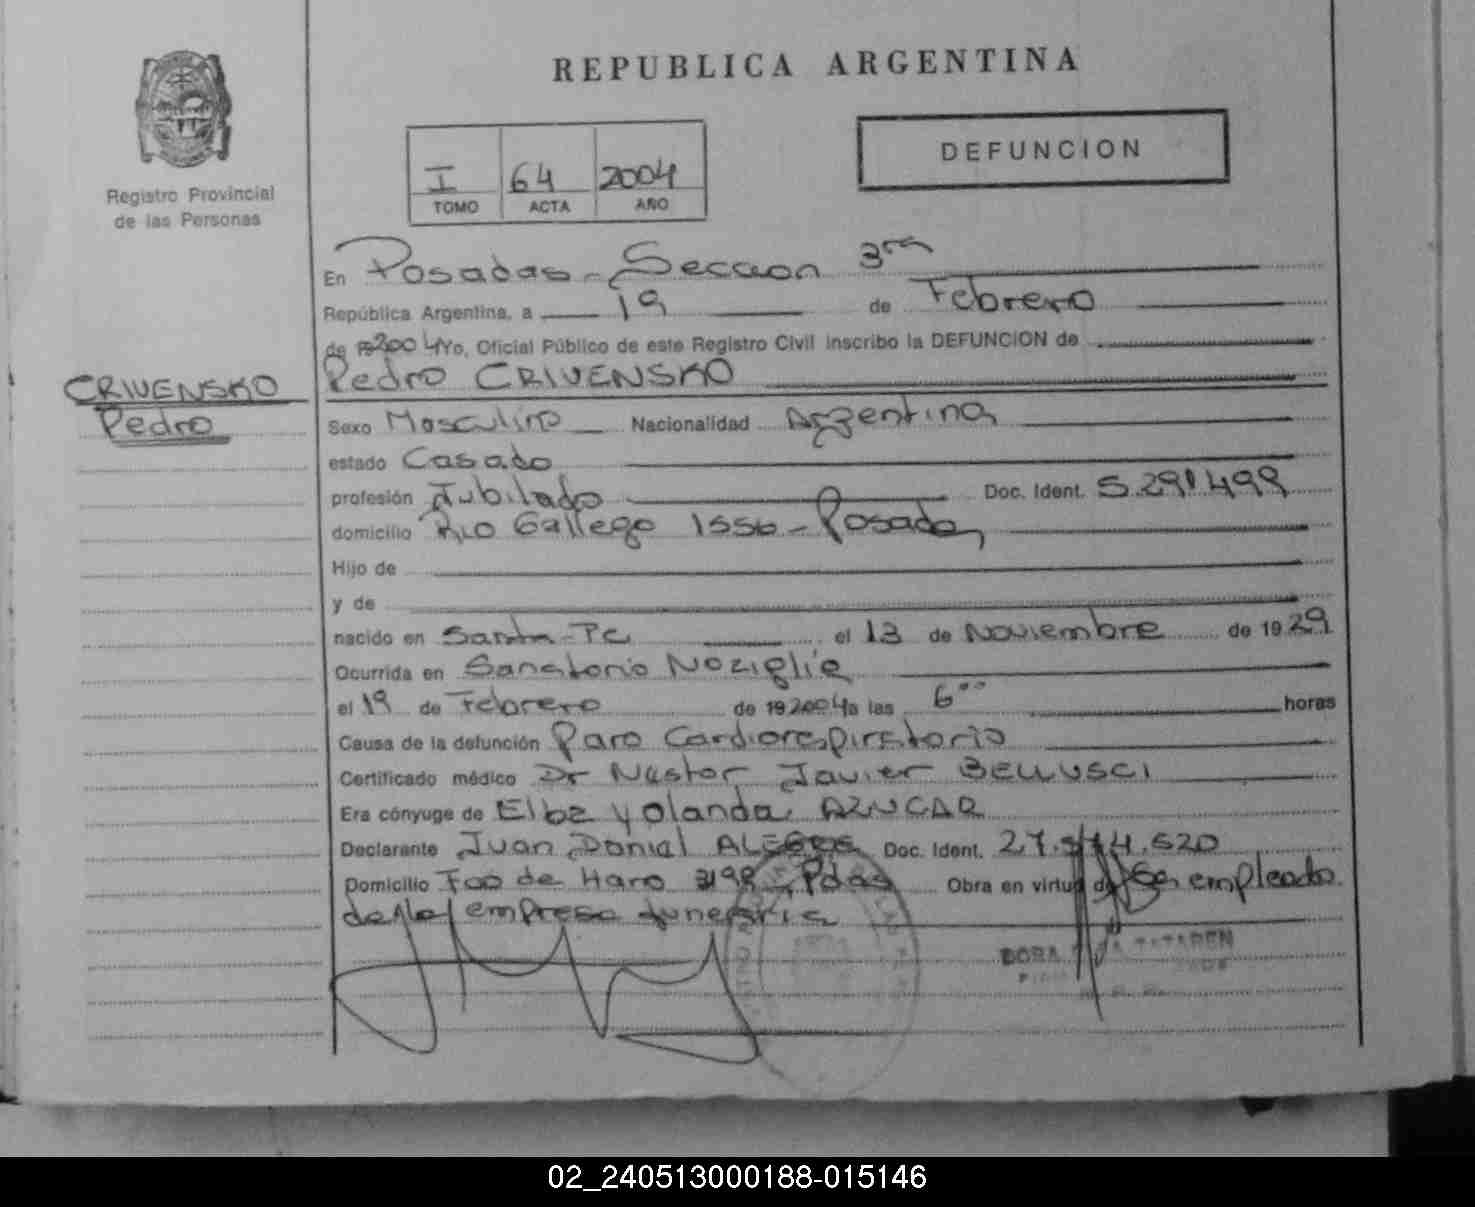 REPUBLICA ARGENTINA
Registro Provincial
de las Personas
I 64 2004
TOMO ACTA AÑO
DEFUNCION
En Posadas - Seccion 3ra
República Argentina, a 19 de Febrero
de 2004 Yo, Oficial Público de este Registro Civil inscribo la DEFUNCION de
CRIVENSKO
Pedro
Pedro CRIVENSKO
Sexo Masculino Nacionalidad Argentina
estado Casado
profesión Jubilado Doc. Ident. 5.291.499
domicilio Rio Gallego 1556 - Posadas
Hijo de
y de
nacido en Santa Fe el 13 de Noviembre de 1929
Ocurrida en Sanatorio Noziglia
el 19 de Febrero de 19 2004 a las 6 00 horas
Causa de la defunción Paro Cardiorespiratorio
Certificado médico Dr Nestor Javier BELLUSCI
Era cónyuge de Elba Yolanda AZUCAR
Declarante Juan Daniel Doc. Ident.
Domicilio Fco de Haro 3198 - Pdas Obra en virtud de Ser empleado
de la empresa funeraria
DORA
02_240513000188-015146